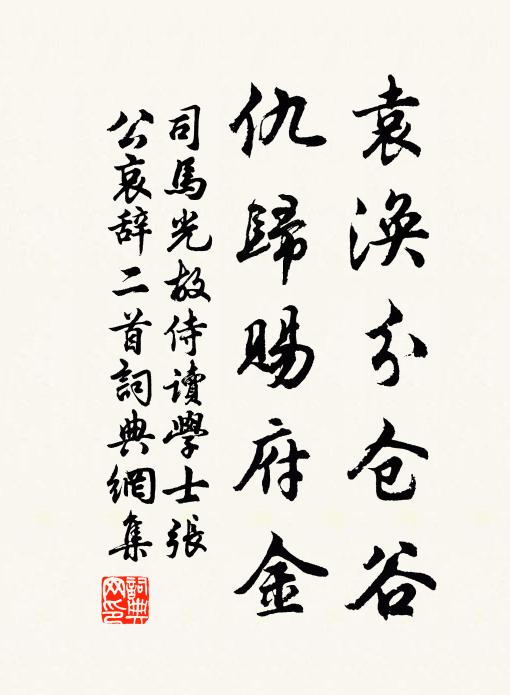 袁涣分仓谷
仇歸賜府金
司馬光故侍讀學士張
公哀辞二首詞典網集
詞典
网印